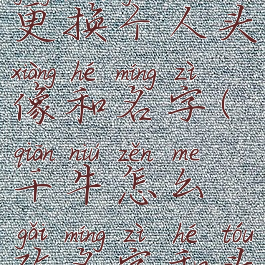 更换个人头
xiàng hé míng zì
像和名字(
qiān niú zěn me
千牛怎么
gǎi míng zì hé tóu
改名字和头